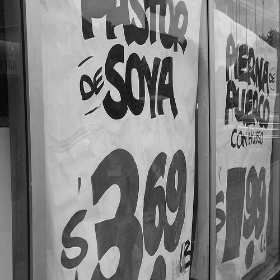 PASTOR
DE SOYA
$3.69
LB
PIERNA DE
PUERCO
CON HUESO
$1.99